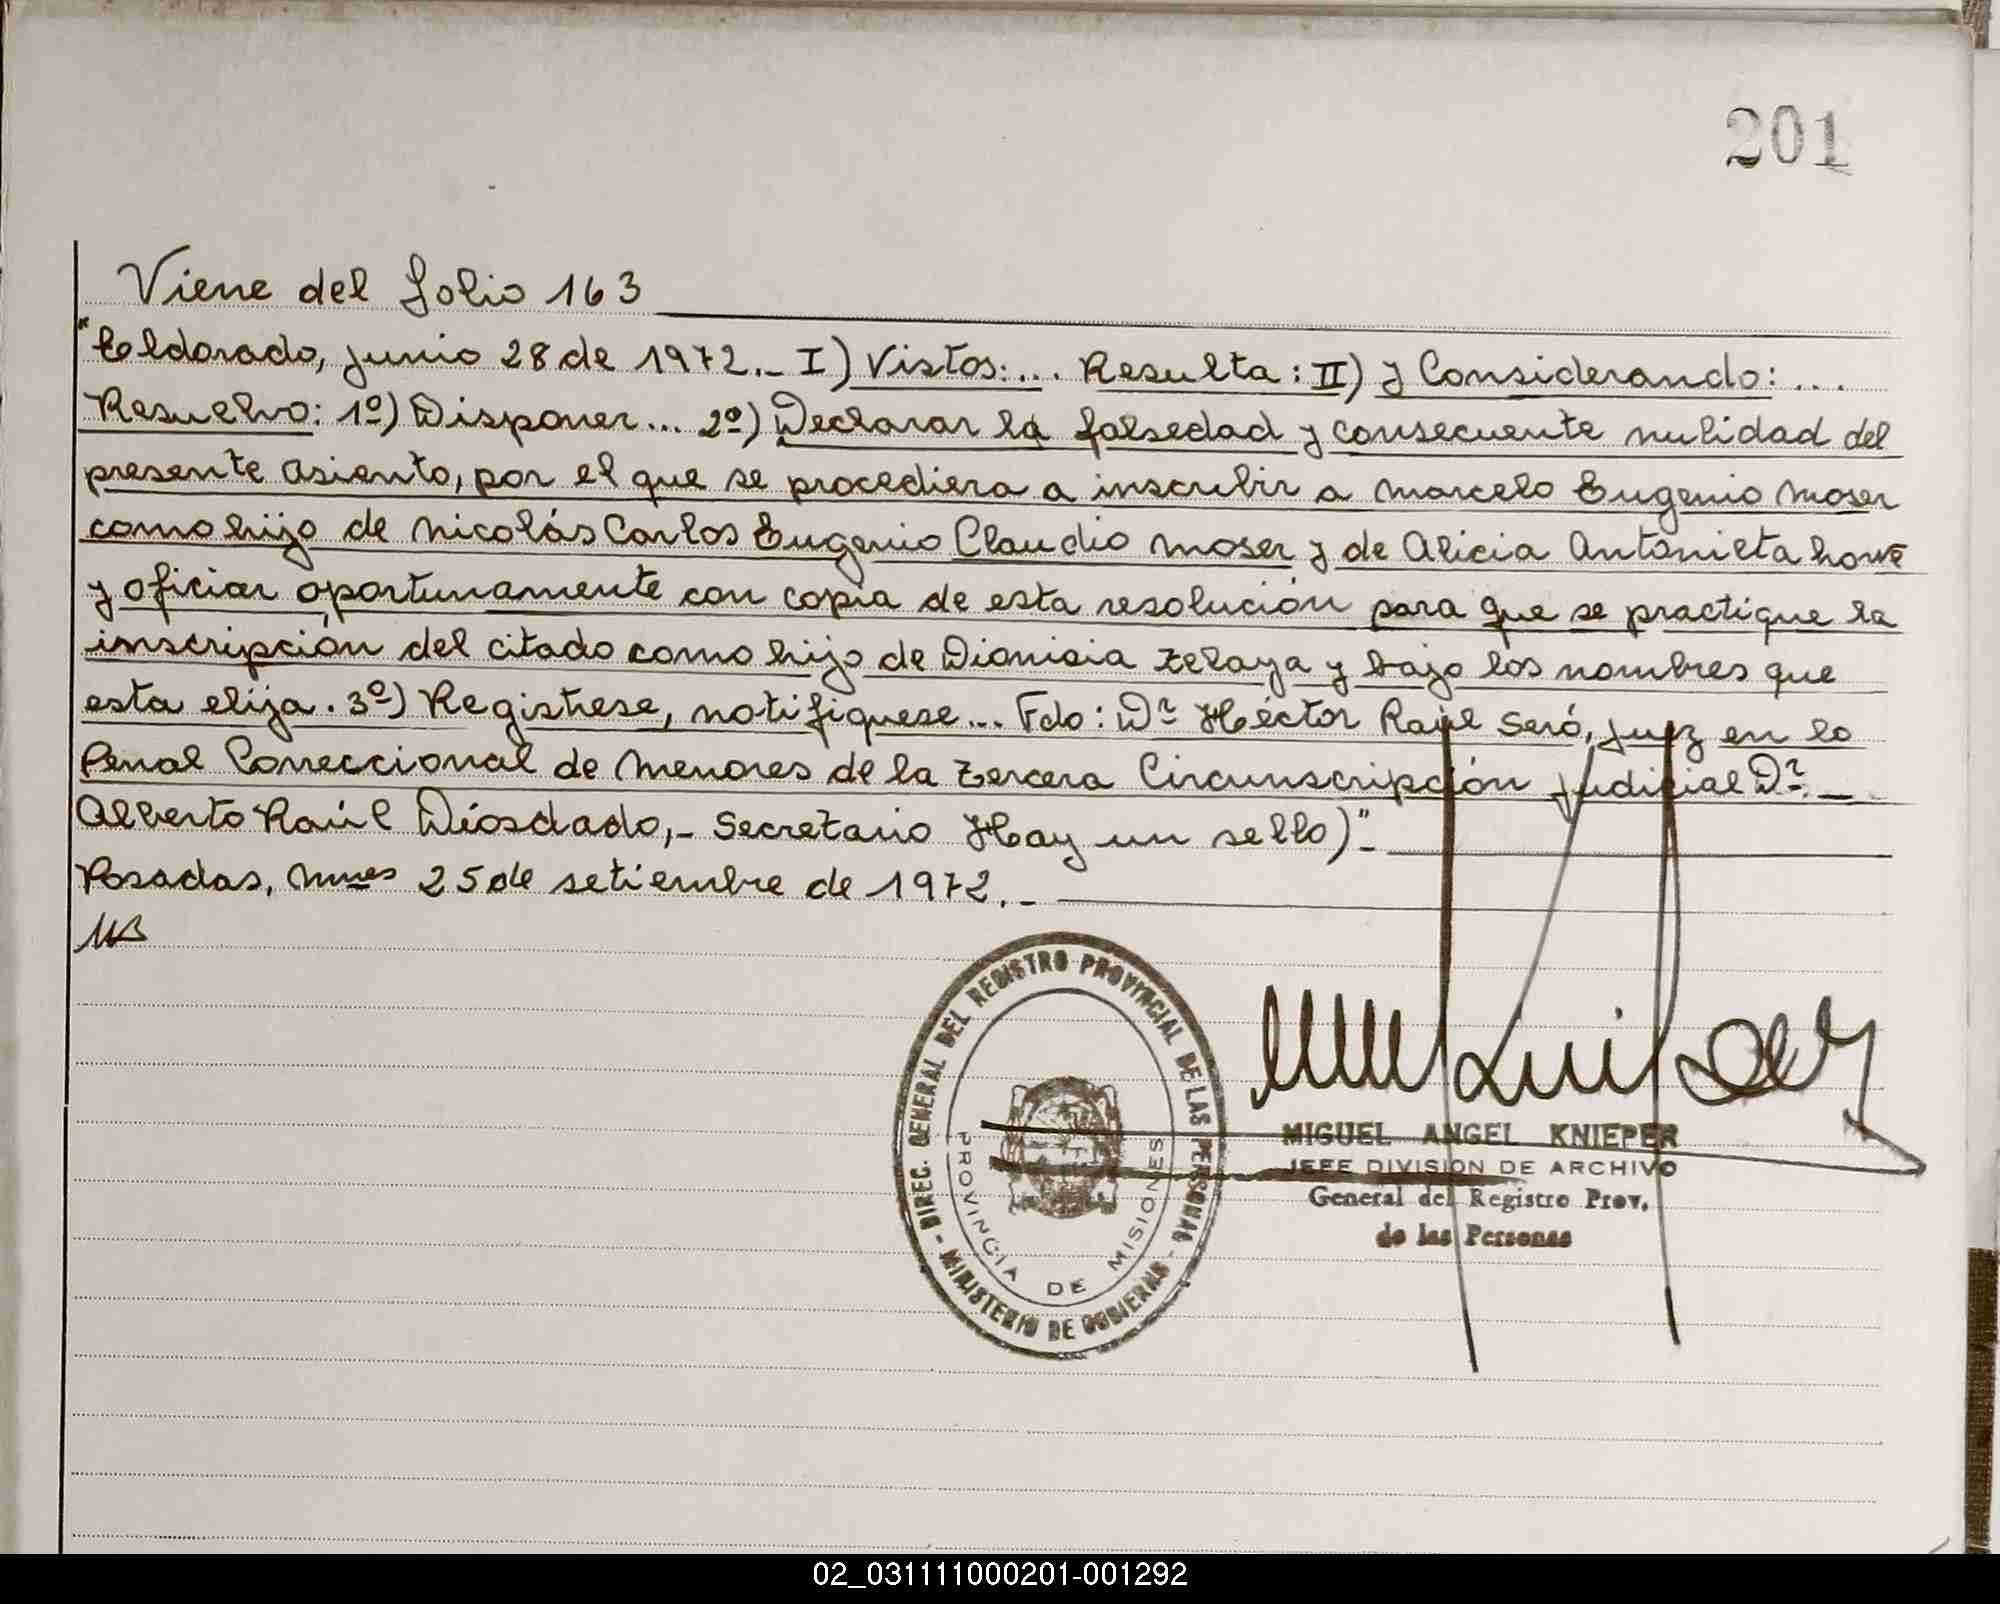 201
Viene del folio 163
"Eldorado, junio 28 de 1972._ I) Vistos:... Resulta: II) y Considerando: ....
Resuelvo: 1º) Disponer... 2º) Declarar la falsedad y consecuente nulidad del
presente asiento, por el que se procediera a inscribir a Marcelo Eugenio Moser
como hijo de Nicolás Carlos Eugenio Claudio Moser y de Alicia Antonieta
y oficiar oportunamente con copia de esta resolución para que se practique la
inscripción del citado como hijo de Dionicia Zelaya y bajo los nombres que
esta elija. 3º) Registrese, notifiquese... Fdo: Dr Héctor Raúl Seró, Juez en lo
Penal Correccional de Menores de la Tercera Circunscripción Judicial Dr._
Alberto Raúl Diosdado,- Secretario Hay un sello)"-
Posadas, Mnes 25 de setiembre de 1972._
DIREC. GENERAL DEL REGISTRO PROVINCIAL DE LAS PERSONAS - MINISTERIO DE GOBIERNO -
PROVINCIA DE MISIONES
MIGUEL ANGEL KNIEPER
JEFE DIVISION DE ARCHIVO
General del Registro Prov.
de las Personas
02_031111000201-001292